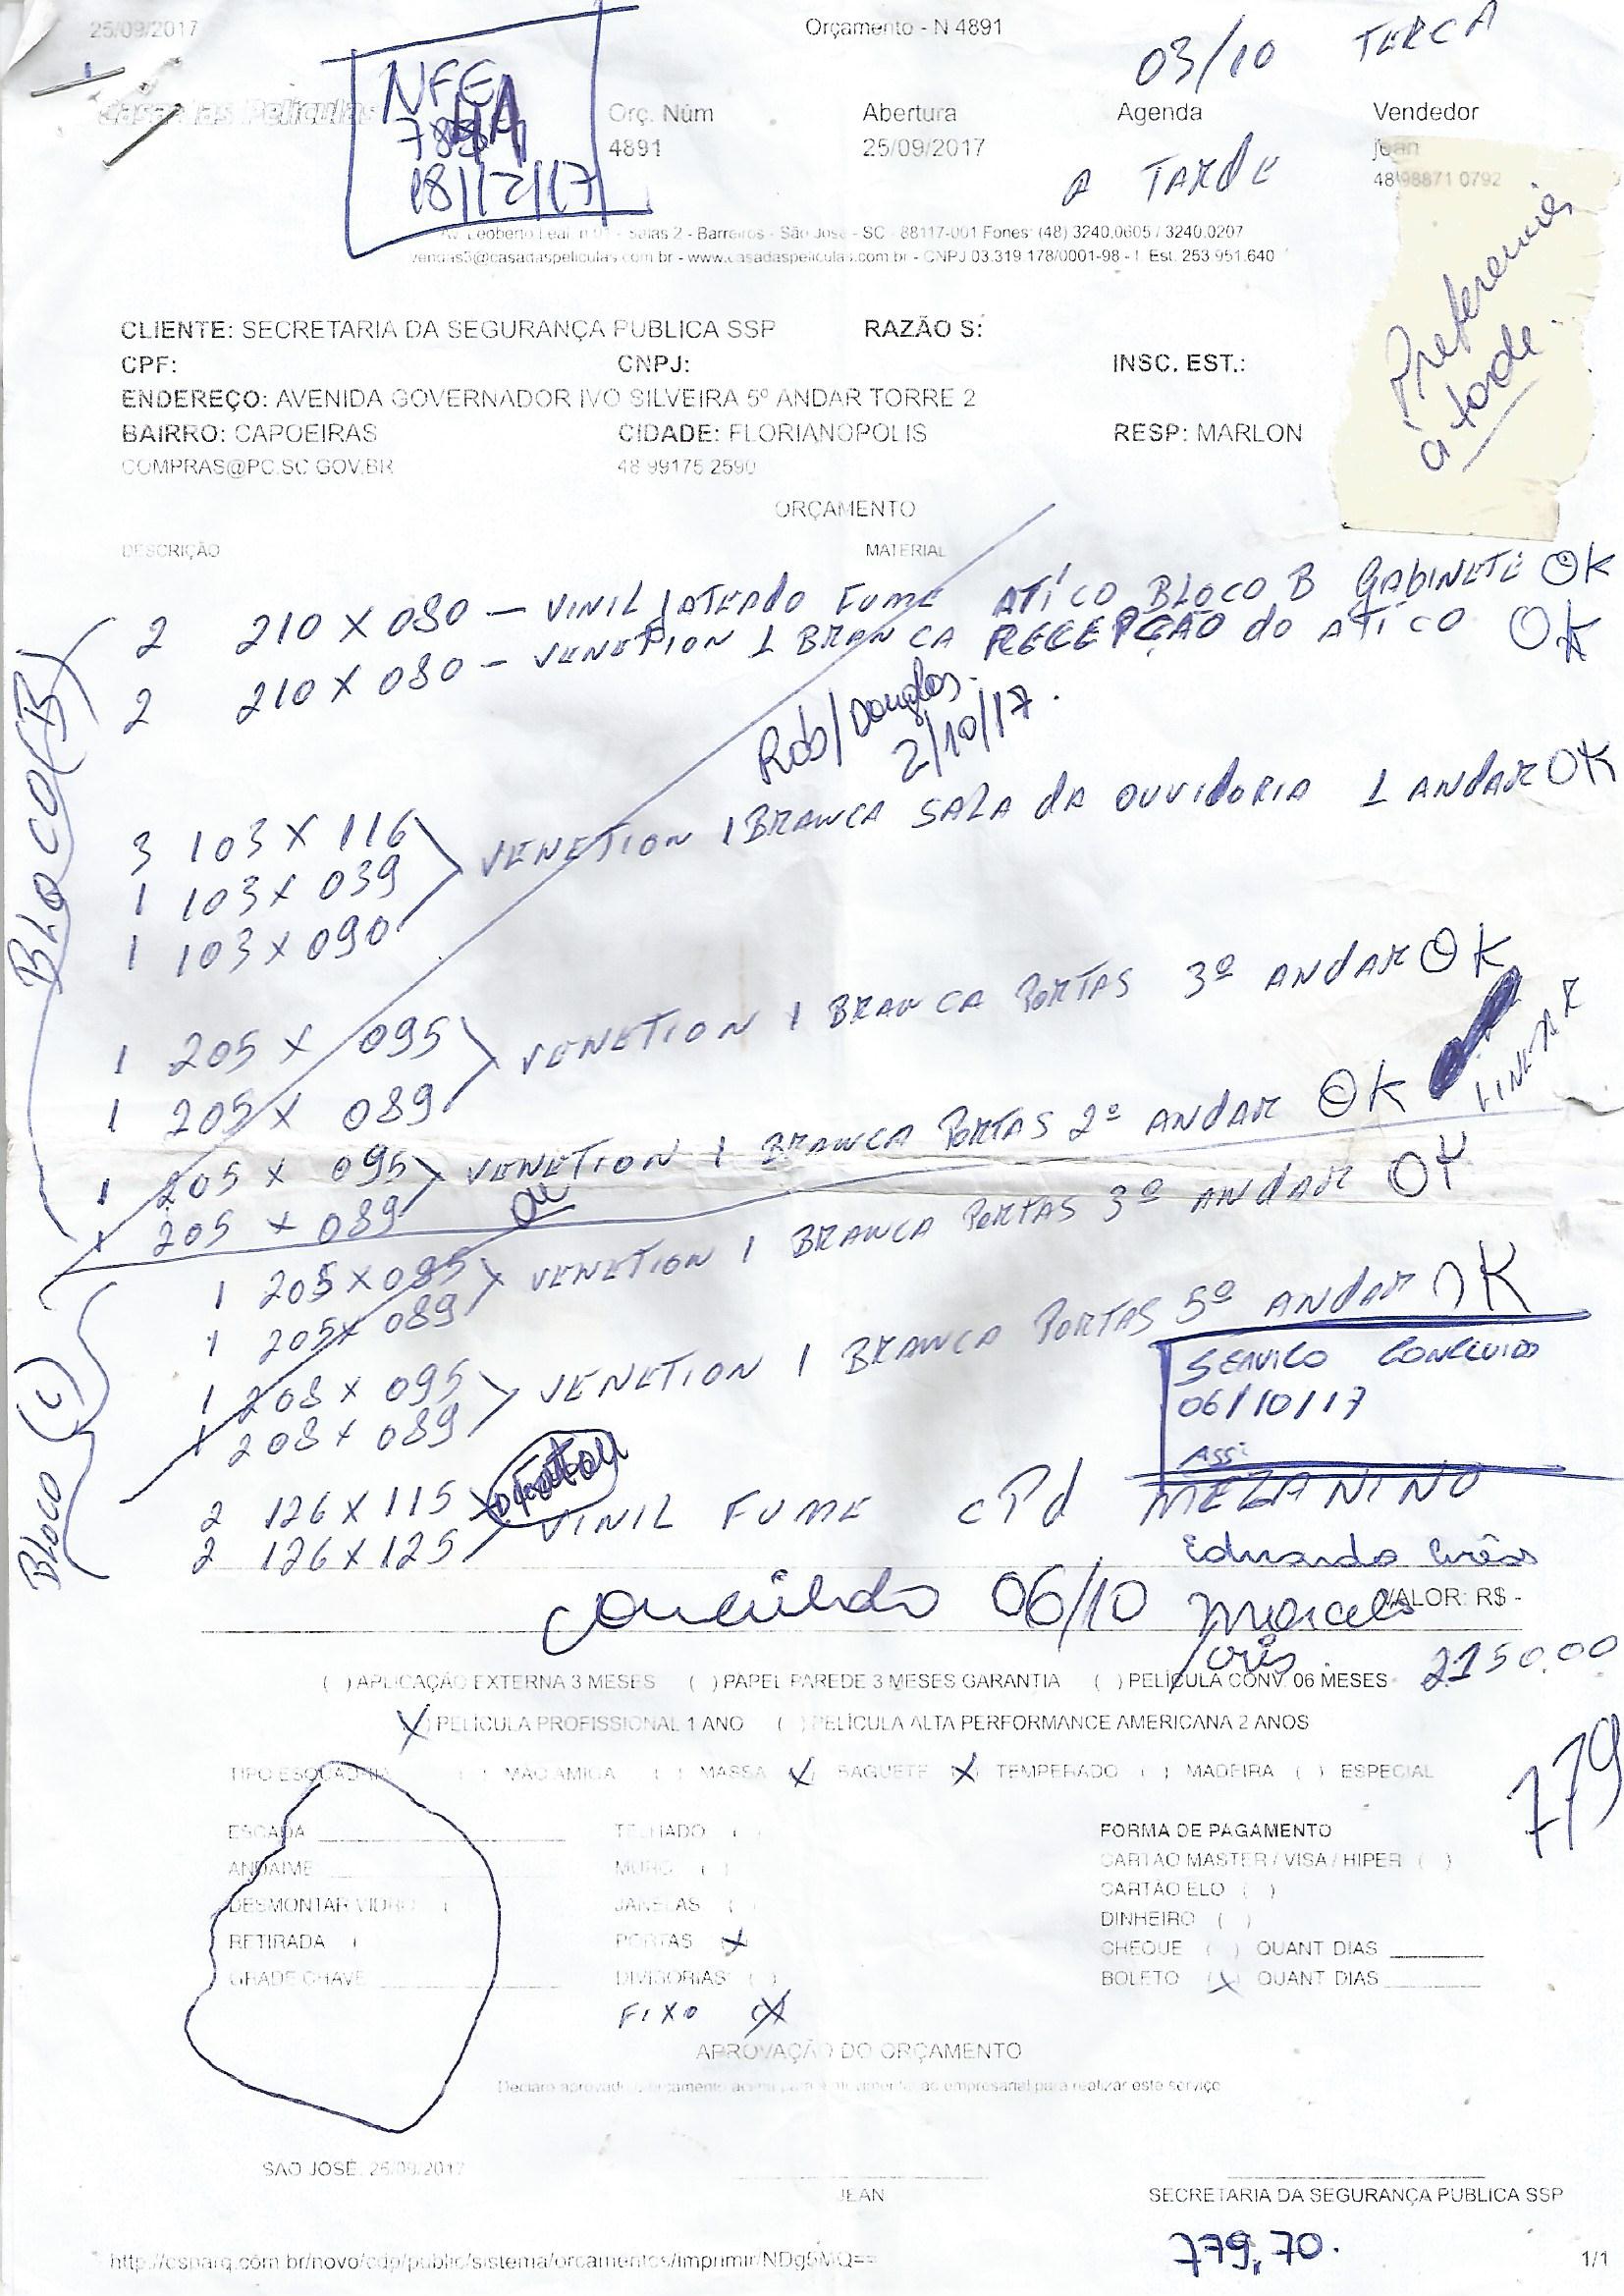 25/09/2017
Orçamento - N 4891
03/10 TERCA
NFE
18/12/17
Casa das Peliculas
Orç. Núm
Abertura
Agenda
Vendedor
4891
25/09/2017
A TARDE
jean
48 98871 0792
Preferencia
à tarde.
Salas 2 - Barreiros - São José - SC - 88117-001 Fones: (48) 3240.0605 / 3240.0207
vendas5@casadaspeliculas.com.br - www.casadaspeliculas.com.br - CNPJ 03.319.178/0001-98 - I. Est. 253.951.640
CLIENTE: SECRETARIA DA SEGURANÇA PUBLICA SSP RAZÃO S:
CPF: CNPJ: INSC. EST.:
ENDEREÇO: AVENIDA GOVERNADOR IVO SILVEIRA 5º ANDAR TORRE 2
BAIRRO: CAPOEIRAS CIDADE: FLORIANOPOLIS RESP: MARLON
COMPRAS@PC.SC.GOV.BR 48 99175 2590
ORÇAMENTO
DESCRIÇÃO MATERIAL
BLOCO (B)
2 210 X 080 - VINIL JATEADO FUME ATICO BLOCO B GABINETE OK
2 210 X 080 - VENETION 1 BRANCA RECEPÇÃO do ATICO OK
Rob/Douglas.
2/10/17.
3 103 X 116
1 103 X 039 VENETION 1 BRANCA SALA DA OUVIDORIA 1 ANDAR OK
1 103 X 090
1 205 X 095
1 205 X 089 VENETION 1 BRANCA PORTAS 3º ANDAR OK
1 205 X 095 VENETION 1 BRANCA PORTAS 2º ANDAR OK
1 205 X 089
BLOCO (C)
1 205 X 095 VENETION 1 BRANCA PORTAS 3º ANDAR OK
1 205 X 089
1 208 X 095 VENETION 1 BRANCA PORTAS 5º ANDAR OK
1 208 X 089
SERVICO CONCLUIDO
06/10/17
ASS:
2 126 X 115
2 126 X 125 VINIL FUME CPd MEZANINO
concluido 06/10
Eduardo
Marcelo
VALOR: R$ -
2150.00
( ) APLICAÇÃO EXTERNA 3 MESES ( ) PAPEL PAREDE 3 MESES GARANTIA ( ) PELÍCULA CONV. 06 MESES
(X) PELÍCULA PROFISSIONAL 1 ANO ( ) PELÍCULA ALTA PERFORMANCE AMERICANA 2 ANOS
779
TIPO ESQUADRIA ( ) MAO AMIGA ( ) MASSA (X) BAGUETE (X) TEMPERADO ( ) MADEIRA ( ) ESPECIAL
ESCADA TELHADO ( ) FORMA DE PAGAMENTO
ANDAIME MURO ( ) CARTAO MASTER / VISA / HIPER ( )
DESMONTAR VIDRO JANELAS ( ) CARTÃO ELO ( )
DINHEIRO ( )
RETIRADA ( PORTAS (X) CHEQUE ( ) QUANT DIAS
GRADE CHAVE DIVISORIAS ( ) BOLETO (X) QUANT DIAS
FIXO (X)
APROVAÇÃO DO ORÇAMENTO
SAO JOSÉ, 25/09/2017
JEAN
SECRETARIA DA SEGURANÇA PUBLICA SSP
779,70.
http://esparq.com.br/novo/cdp/public/sistema/orcamentos/imprimir/NDg5MQ==
1/1